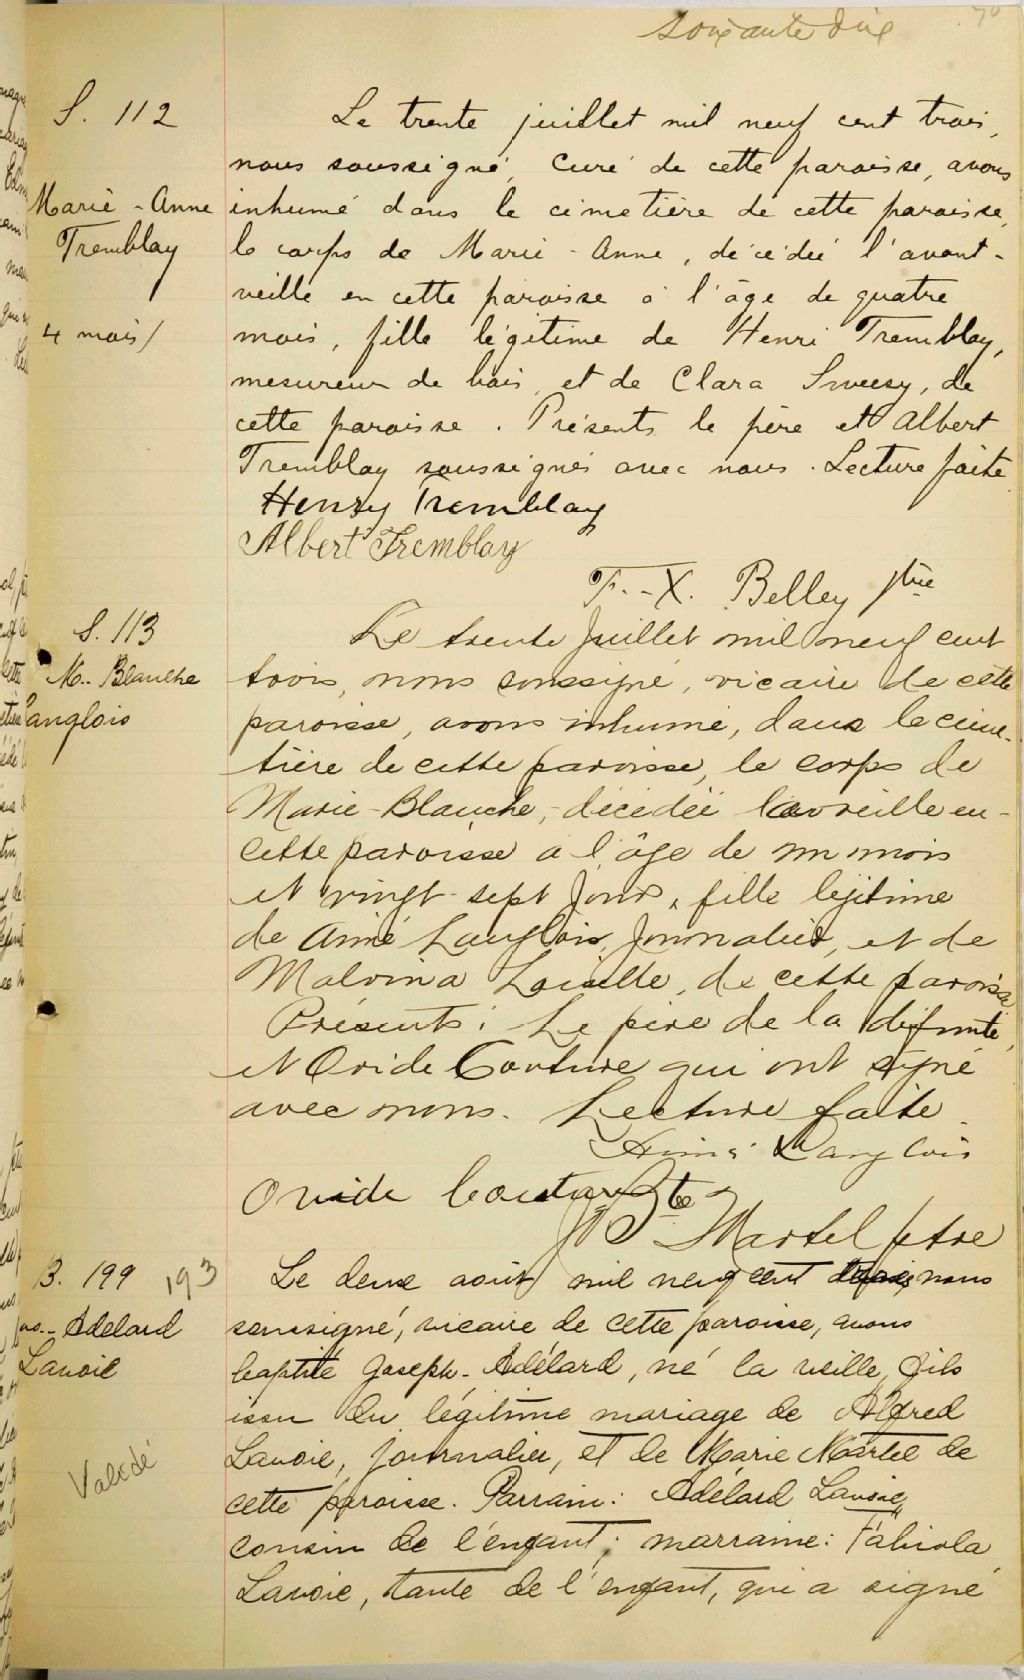 soixante dix
70
S. 112
Marie-Anne
Tremblay
4 mois/
Le trente juillet mil neuf cent trois,
nous soussigné, Curé de cette paroisse, avons
inhumé dans le cimetière de cette paroisse,
le corps de Marie-Anne, décédée l'avant-
veille en cette paroisse à l'âge de quatre
mois, fille légitime de Henri Tremblay,
mesureur de bois, et de Clara Sweesy, de
cette paroisse. Présents le père et Albert
Tremblay soussignés avec nous. Lecture faite
Henry Tremblay
Albert Tremblay
F.-X. Belley ptre
S. 113
M.-Blanche
Langlois
Le trente Juillet mil neuf cent
trois, nous soussigné, vicaire de cette
paroisse, avons inhumé, dans le cime-
tière de cette paroisse, le corps de
Marie-Blanche, décédée la veille en
cette paroisse à l'âge de un mois
et vingt-sept jours, fille légitime
de Aimé Langlois, Journalier, et de
Malvina Loiselle, de cette paroisse
Présents: Le père de la défunte,
et Ovide Couture qui ont signé
avec nous. Lecture faite.
Aimé Langlois
Ovide Couture
J Bte Martel ptre
B. 199 193
Jos.-Adelard
Lavoie
Validé
Le deux août mil neuf cent trois, nous
soussigné, vicaire de cette paroisse, avons
baptisé Joseph-Adélard, né la veille, fils
issu du légitime mariage de Alfred
Lavoie, journalier, et de Marie Martel de
cette paroisse. Parrain: Adélard Lavoie,
cousin de l'enfant; marraine: Fabiola
Lavoie, tante de l'enfant, qui a signé